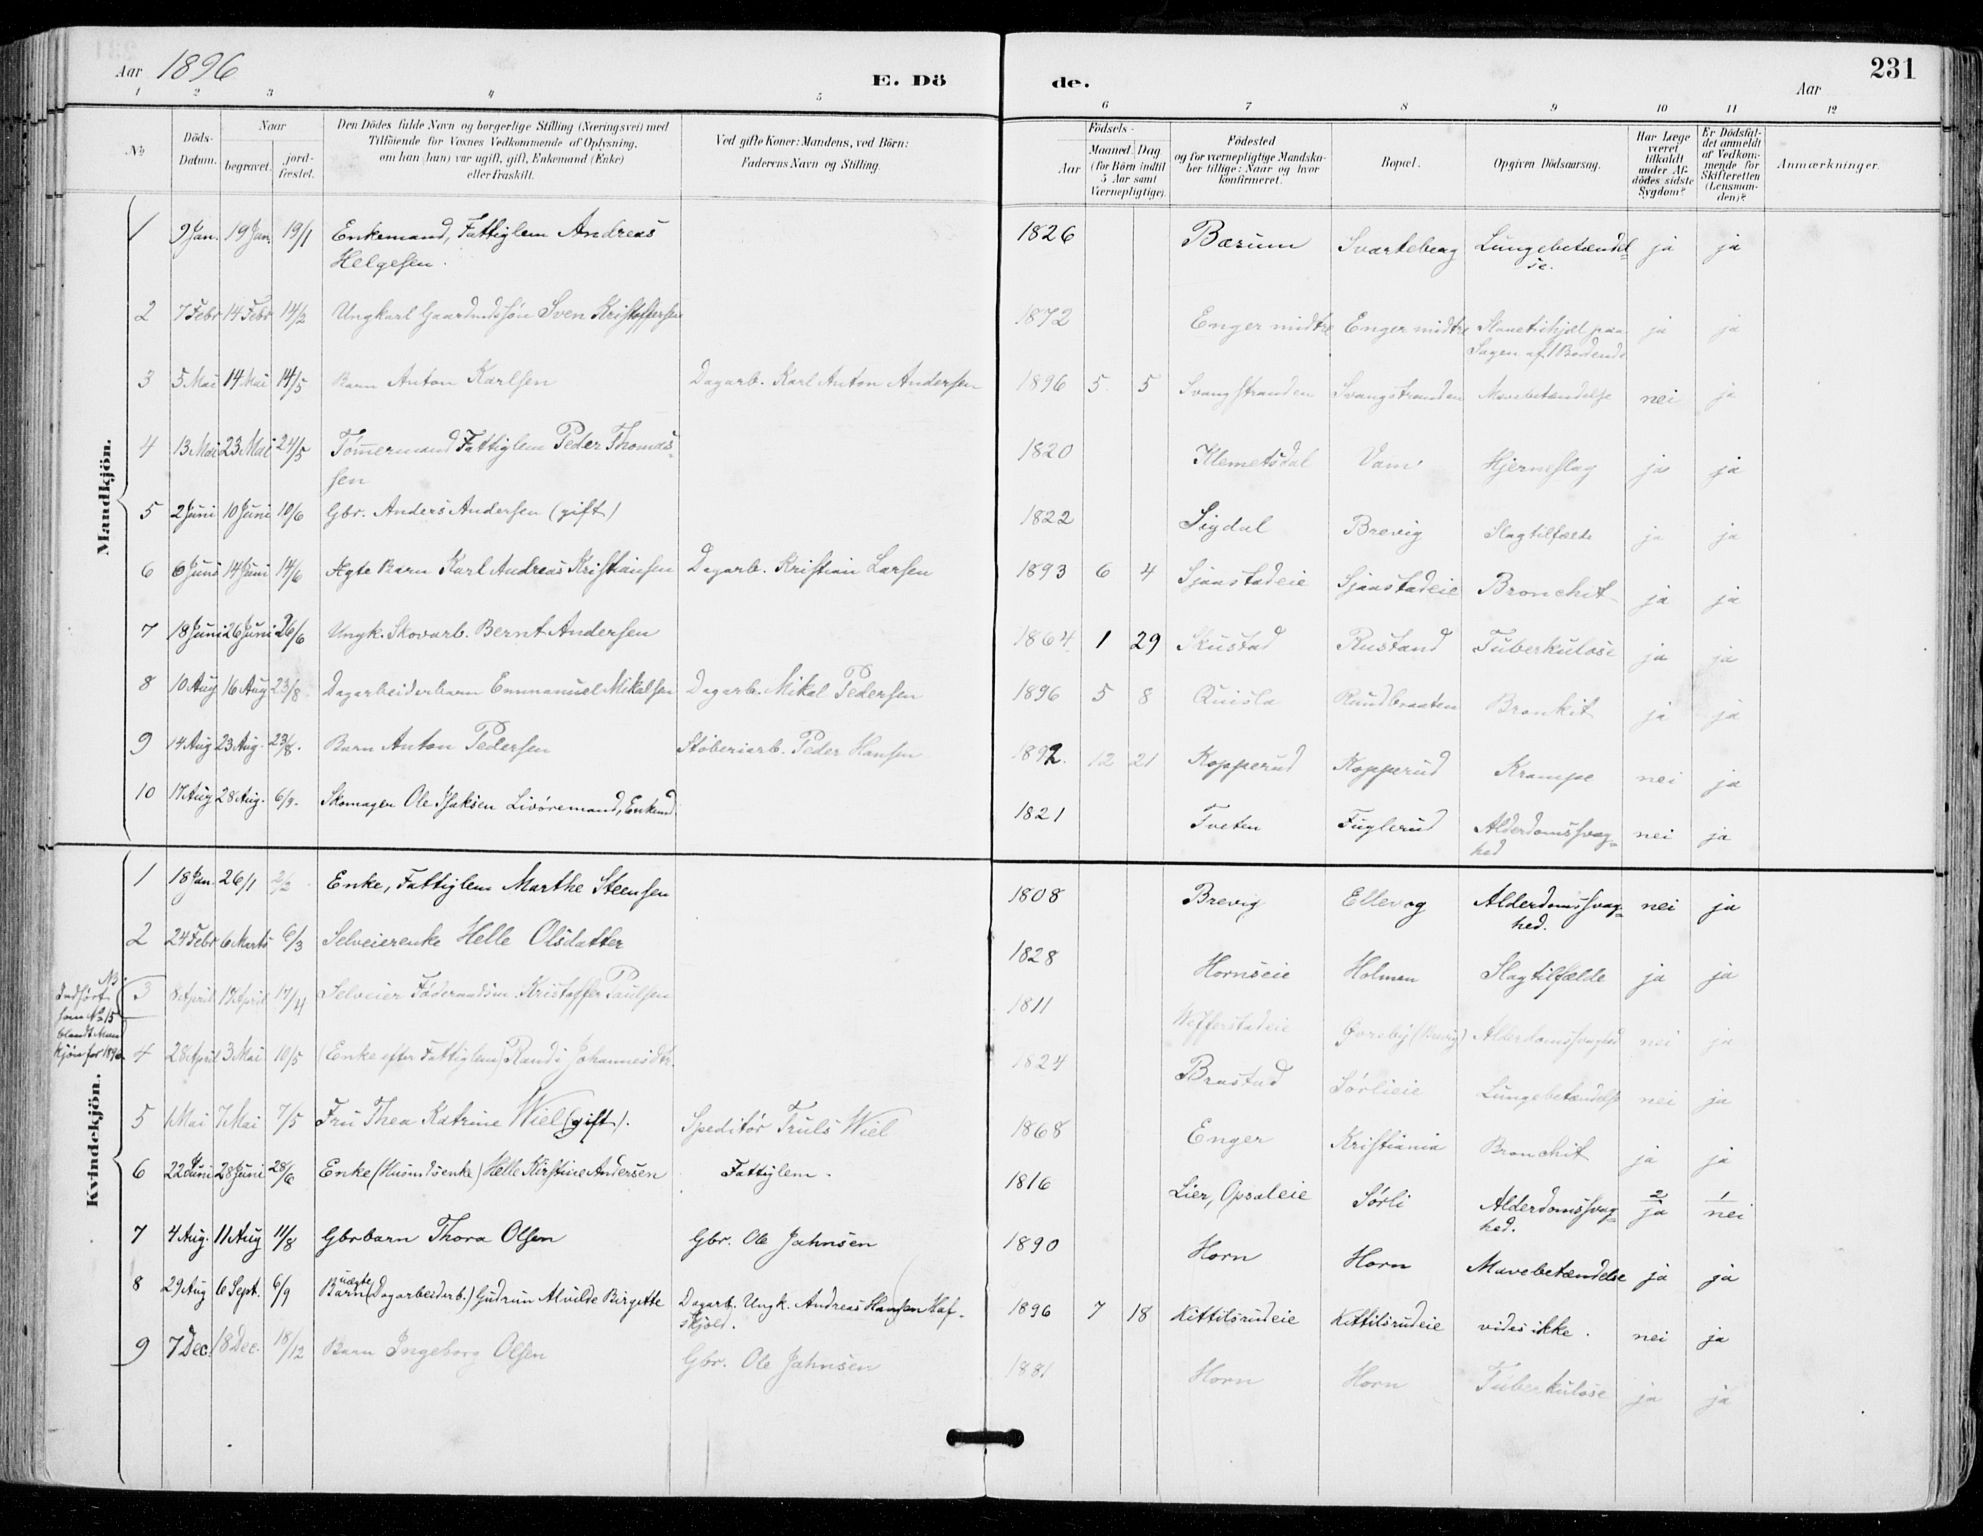 Aar 1896
E. Dö
de.
Aar
231
1 2 3 4 5 6 7 8 9 10 11 12
No
Döds-Datum.
Naar
begravet.
jord-fæstet.
Den Dödes fulde Navn og borgerlige Stilling (Næringsvei) med
Tilföiende for Voxnes Vedkommende af Oplysning,
om han (hun) var ugift, gift, Enkemand (Enke)
eller fraskilt.
Ved gifte Koner: Mandens, ved Börn:
Faderens Navn og Stilling.
Födsels-
Aar
Maaned. Dag
(for Börn indtil
5 Aar samt
Værnepligtige).
Födested
og for værnepligtige Mandska-
ber tillige: Naar og hvor
konfirmeret.
Bopæl.
Opgiven Dödsaarsag.
Har Læge
været
tilkaldt
under Af-
dödes sidste
Sygdom?
Er Dödsfal-
det anmeldt
af Vedkom-
mende for
Skifteretten
(Lensman-
den)?
Anmærkninger.
Mandkjön.
1 9 Jan. 19 Jan. 19/1 Enkemand, Fattiglem Andreas 1826 Bærum Svartebeag Lungebetændel=
Helgesen. se. ja ja
2 7 Febr 14 Febr 14/2 Ungkarl Gaardmdssøn Sven Kristoffersen 1872 Enger midtre Enger midtre
ja ja
3 5 Mai 14 Mai 14/5 Barn Anton Karlsen Dagarb. Karl Anton Andersen 1896 5 5 Svangstranden Svangstranden Mavebetændelse nei ja
4 13 Mai 23 Mai 24/5 Tømermand Fattiglem Peder Thomas= 1820 Klemetsdal Vam Hjerneslag ja ja
sen
5 2 Juni 10 Juni 10/6 Gbr. Anders Andersen (gift) 1822 Sigdal Brevig Slagtilfælde ja ja
6 6 Juni 14 Juni 14/6 Ægte Barn Karl Andreas Kristiansen Dagarb. Kristian Larsen 1893 6 4 Sjaastadeie Sjaastadeie Bronchit ja ja
7 18 Juni 26 Juni 26/6 Ungk. Skovarb. Bernt Andersen 1864 1 29 Skustad Rustand Tuberkulose ja ja
8 10 Aug 16 Aug 23/8. Dagarbeiderbarn Emmanuel Mikalsen Dagarb. Mikal Pedersen 1896 5 8 Quisla Rundbraaten Bronkit ja ja
9 14 Aug 23 Aug. 23/8. Barn Anton Pedersen Støberiarb. Peder Hansen 1892. 12 21 Kopperud Kopperud Krampe nei ja
10 17 Aug 28 Aug. 6/9. Skomager Ole Isaksen Livøremand, Enkemd. 1821 Tveten Fuglerud Alderdomssvag= nei ja
hed
Kvindekjön.
1 18 Jan. 26/1 2/2 Enke, Fattiglem Marthe Steensen 1808 Brevig Ellevog Alderdomssvag= nei ja
hed.
2 24 Febr 6 Marts 6/3 Selveierenke Helle Olsdatter 1828 Hornseie Holmen Slagtilfælde ja ja
NB.
Indført
som No 15
blandt Man
kjøn for 1896
3 8 April 17 April 17/4 Selveier Føderaadsm. Kristoffer Paulsen 1811 Øvreby (Brevig) Alderdomssvaghed nei ja
4 28 April 3 Mai 10/5 (Enke efter Fattiglem) Randi Johannesdtr. 1824 Brastad Sørlieie Lungebetændelse nei ja
5 1 Mai 7 Mai 7/5 Fru Thea Katrine Wiel (gift). Speditør Truls Wiel 1868 Enger Kristiania Bronchit ja ja
6 22 Juni 28 Juni 28/6 Enke (Husmdsenke) Helle Kirstine Andersen Fattiglem. 1816 Lier, Opsaleie Sørli Alderdomssvag= 2 ja 1 nei
hed.
7 4 Aug. 11 Aug 11/8 Gbrbarn Thora Olsen Gbr. Ole Jahnsen 1890 Horn Horn Mavebetændelse ja ja
8 29 Aug 6 Sept. 6/9 uægte Barn (Dagarbeiderb.) Gudrun Alvilde Birgitte Dagarb. Ungk. Andreas Hansen Haf-
skjold. 1896 7 18 Kittilsrudeie Kittilsrudeie vides ikke. nei ja
9 7 Dec. 18 Dec. 18/12 Barn Ingeborg Olsen Gbr. Ole Jahnsen 1881 Horn Horn Tuberkulose ja ja